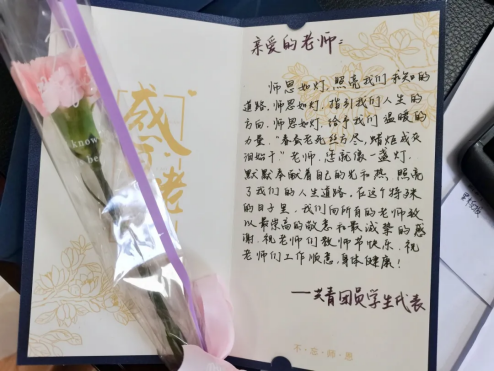 亲爱的老师:
师恩如灯,照亮我们求知的
道路。师恩如灯,指引我们人生的
方向。师恩如灯,给予我们温暖的
力量。“春蚕老死丝方尽,蜡炬成灰
泪始干”老师,您就像一盏灯,
默默奉献着自己的光和热,照亮
了我们的人生道路。在这个特殊
的日子里,我们向所有的老师致
以最崇高的敬意和最诚挚的感
谢。祝老师们教师节快乐,祝
老师们工作顺意,身体健康!
——共青团员学生代表
不·忘·师·恩
感
老
know
be